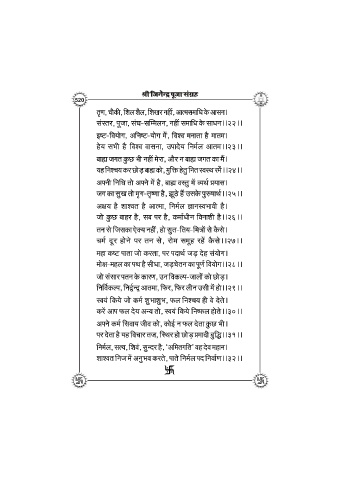 श्री जिनेन्द्र पूजा संग्रह
520
तृण, चौकी, शिल शैल, शिखर नहीं, आत्मसमाधि के आसन।
संस्तर, पूजा, संघ-सम्मिलन, नहीं समाधि के साधन।।२२।।
इष्ट-वियोग, अनिष्ट-योग में, विश्व मनाता है मातम।
हेय सभी है विश्व वासना, उपादेय निर्मल आतम।।२३।।
बाह्य जगत कुछ भी नहीं मेरा, और न बाह्य जगत का मैं।
यह निश्चय कर छोड़ बाह्य को, मुक्ति हेतु नित स्वस्थ रमें।।२४।।
अपनी निधि तो अपने में है, बाह्य वस्तु में व्यर्थ प्रयास।
जग का सुख तो मृग-तृष्णा है, झूठे हैं उसके पुरुषार्थ।।२५।।
अक्षय है शाश्वत है आत्मा, निर्मल ज्ञानस्वभावी है।
जो कुछ बाहर है, सब पर है, कर्माधीन विनाशी है।।२६।।
तन से जिसका ऐक्य नहीं, हो सुत-तिय-मित्रों से कैसे।
चर्म दूर होने पर तन से, रोम समूह रहें कैसे।।२७।।
महा कष्ट पाता जो करता, पर पदार्थ जड़ देह संयोग।
मोक्ष-महल का पथ है सीधा, जड़ चेतन का पूर्ण वियोग।।२८।।
जो संसार पतन के कारण, उन विकल्प-जालों को छोड़।
निर्विकल्प, निर्द्वन्द्व आतमा, फिर, फिर लीन उसी में हो।।२९।।
स्वयं किये जो कर्म शुभाशुभ, फल निश्चय ही वे देते।
करें आप फल देय अन्य तो, स्वयं किये निष्फल होते।।३०।।
अपने कर्म सिवाय जीव को, कोई न फल देता कुछ भी।
पर देता है यह विचार तज, स्थिर हो छोड़ प्रमादी बुद्धि।।३१।।
निर्मल, सत्य, शिवं, सुन्दर है, 'अमितगति' वह देव महान।
शाश्वत निज में अनुभव करते, पाते निर्मल पद निर्वाण।।३२।।